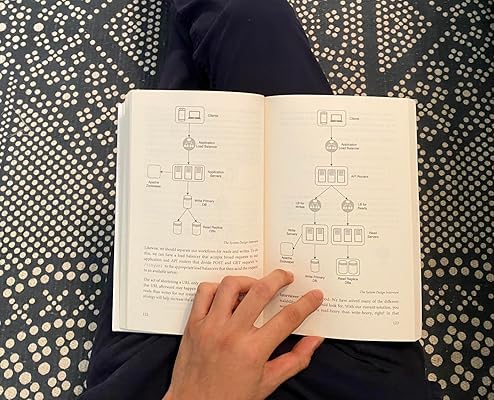 Clients
Application
Load Balancer
Application
Servers
Apache
Zookeeper
Write Primary
DB
Read Replica
DBs
The System Design Interview
Likewise, we should separate our workflows for reads and writes. To do
this, we can have a load balancer that accepts broad requests to our
application and API routers that divide POST and GET requests to
to the appropriate load balancers that then send the requests
to an available server.
The act of shortening a URL only
the URL afterward may happen
reads than writes for our system
strategy will help increase the
122
Clients
Application
Load Balancer
API Routers
LB for
Writes
LB for
Reads
Write
Servers
Read
Servers
Apache
Zookeeper
Write Primary
DB
Read Replica
DBs
The System Design Interview
We have solved many of the different
look for. With our current solution, you
read-heavy than write-heavy, right? In that
127